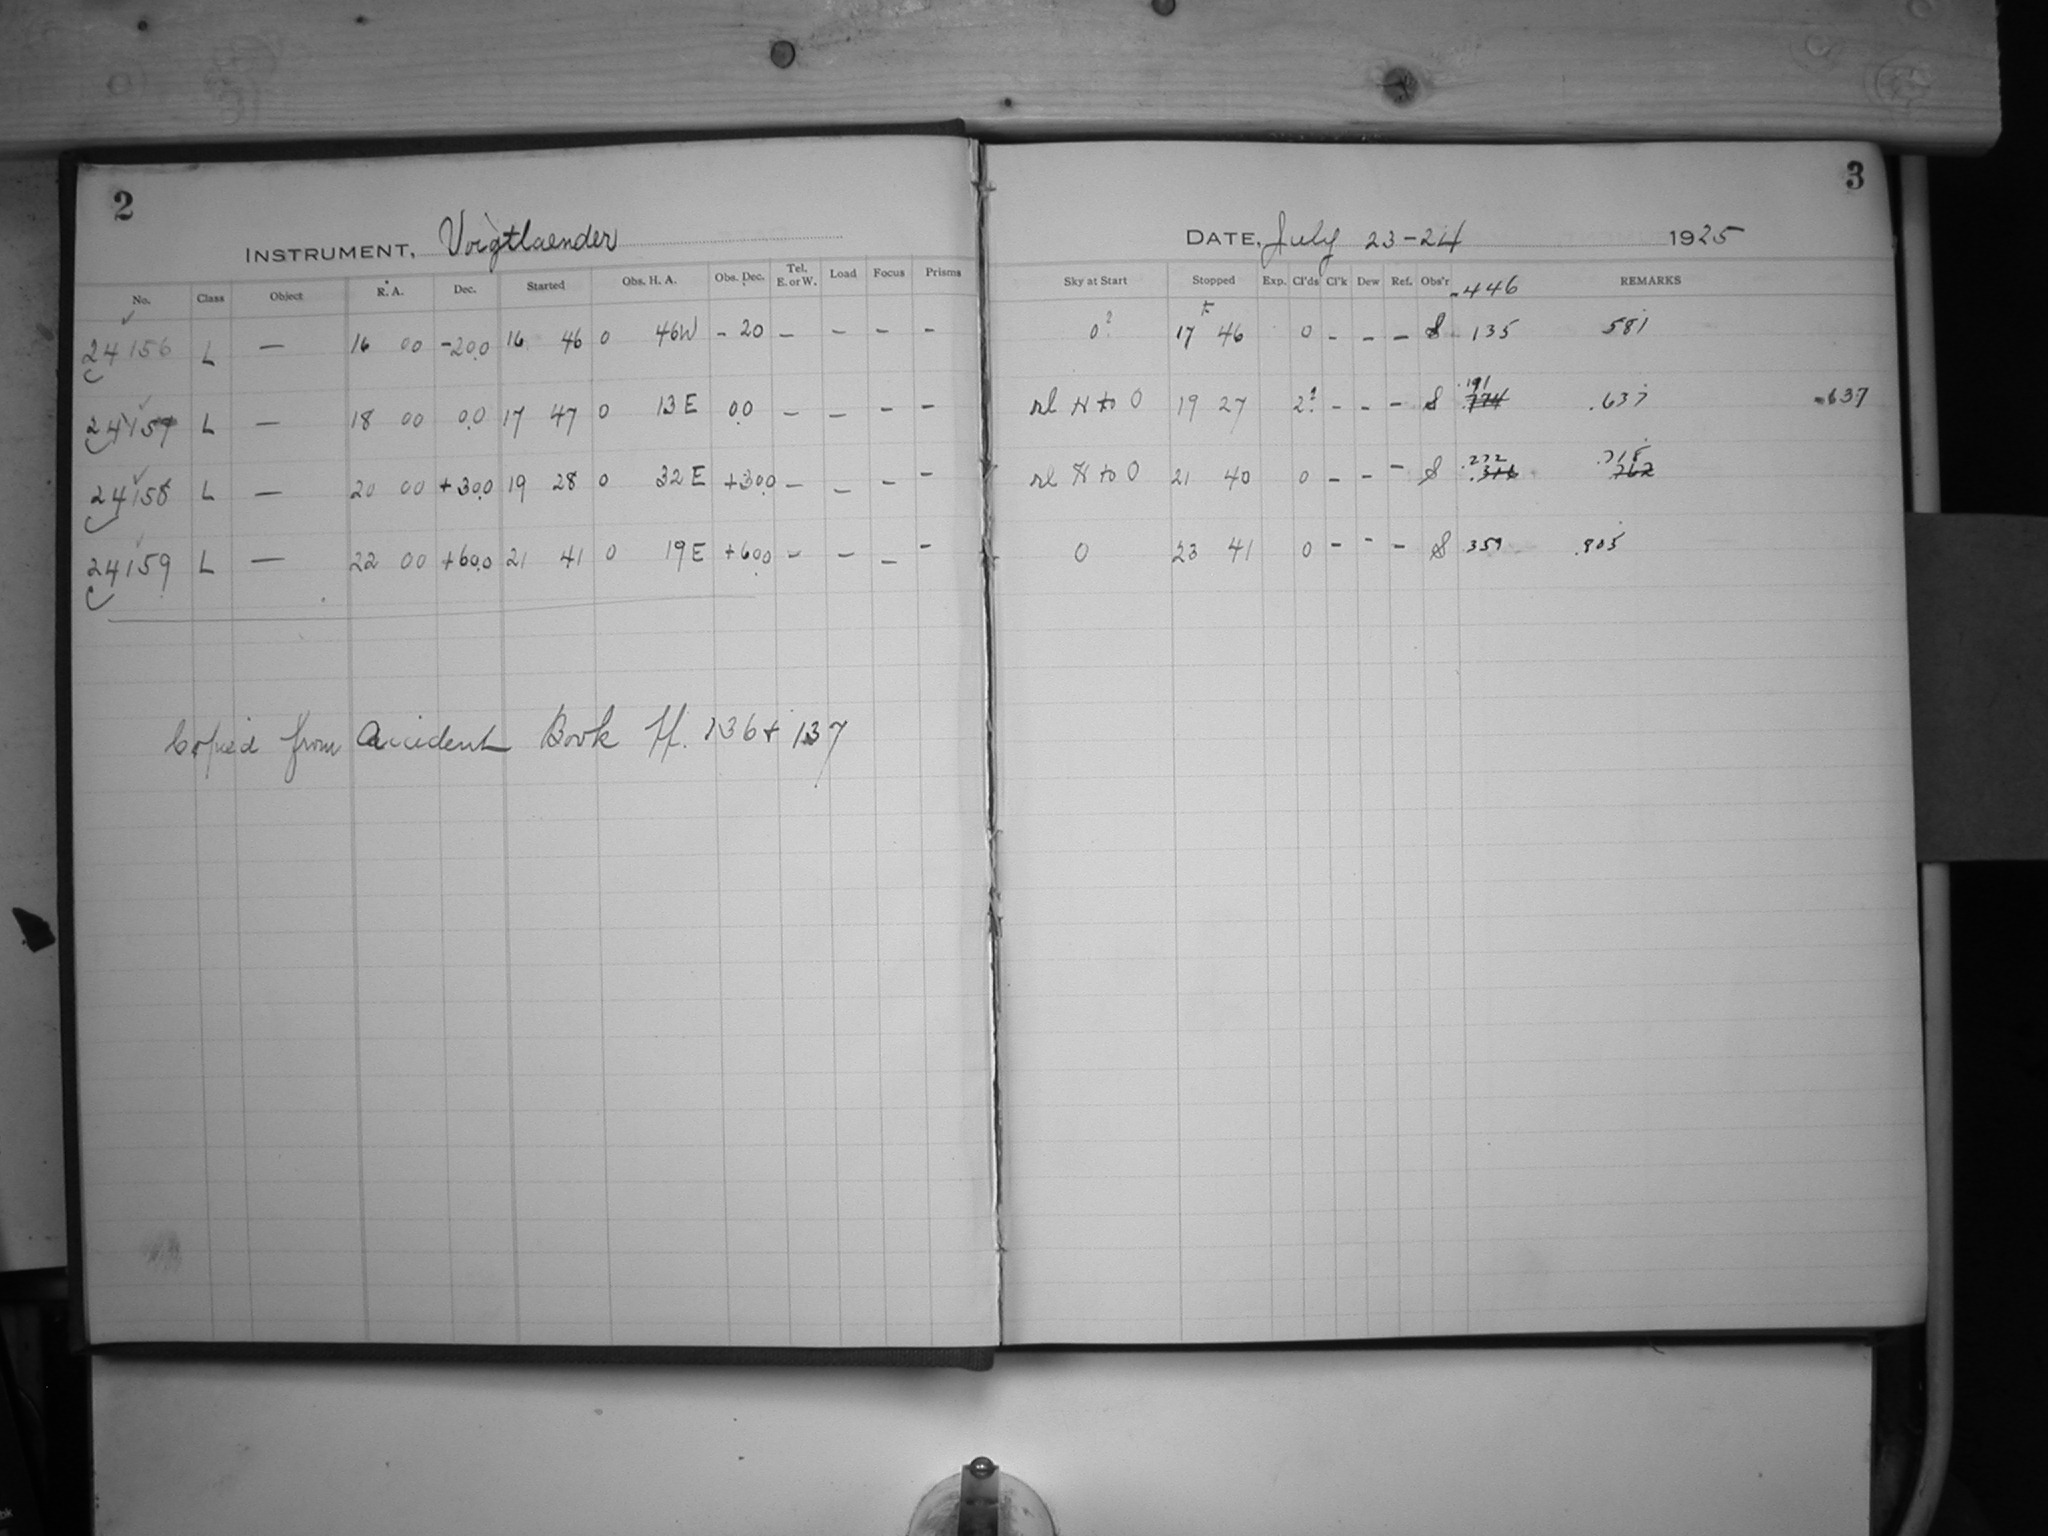 2
INSTRUMENT, Voigtlaender
No. Class Object R. A. Dec. Started Obs. H. A. Obs. Dec. Tel. E. or W. Load Focus Prisms
24156 L — 16 00 -20.0 16 46 0 46W - 20 - - - -
24157 L — 18 00 0.0 17 47 0 13 E 0.0 - - - -
24158 L — 20 00 +30.0 19 28 0 32 E +30.0 - - - -
24159 L — 22 00 +60.0 21 41 0 19 E +60.0 - - - -
Copied from Accident Book pp. 136 + 137
3
DATE, July 23-24 1925
Sky at Start Stopped Exp. Cl'ds Cl'k Dew Ref. Obs'r .446 REMARKS
0? 17 46 0 - - - S 135 581
to 0 19 27 2? - - - S .191 .774 .637 .637
to 0 21 40 0 - - - S .272 .316 .718 .762
0 23 41 0 - - - S 359 .805